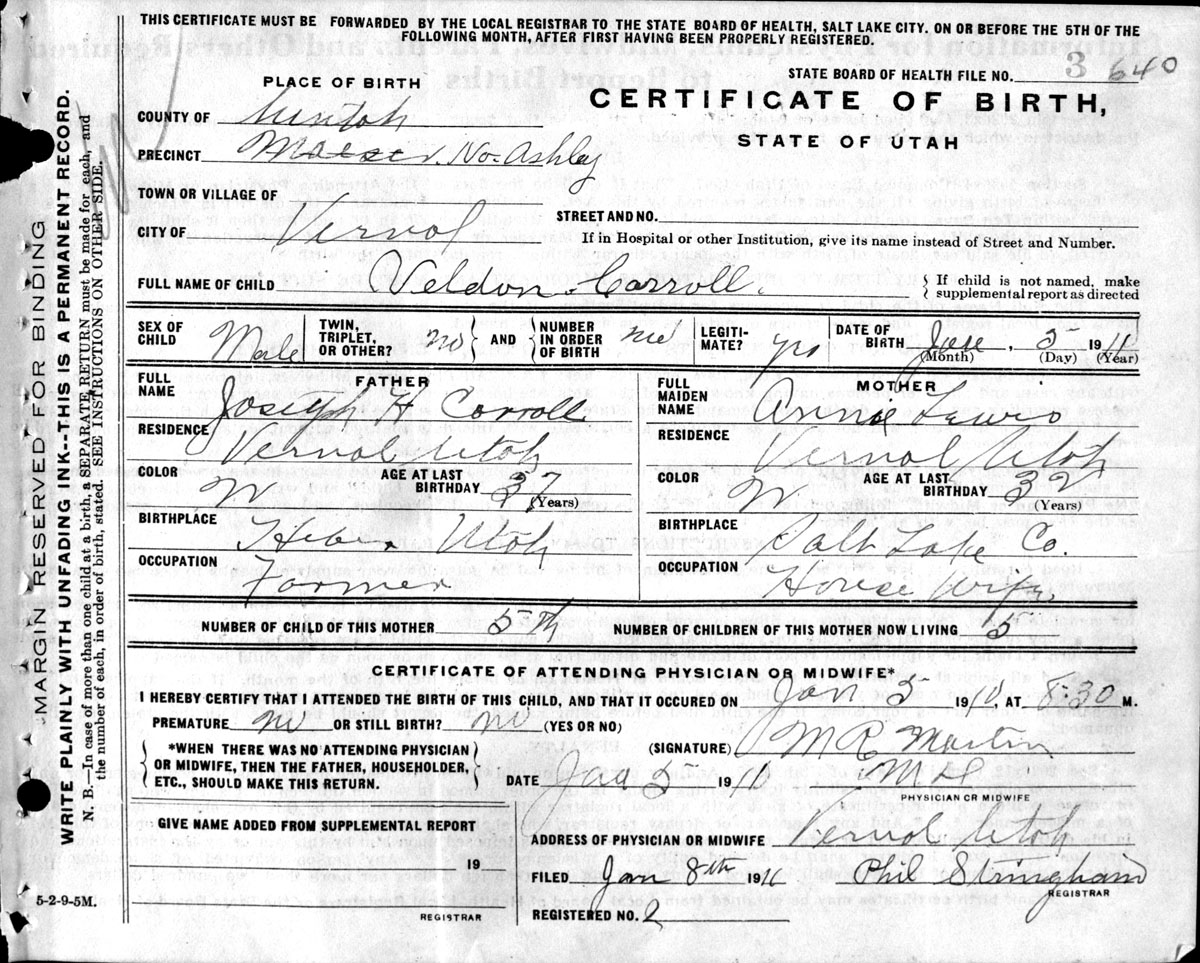 THIS CERTIFICATE MUST BE FORWARDED BY THE LOCAL REGISTRAR TO THE STATE BOARD OF HEALTH, SALT LAKE CITY. ON OR BEFORE THE 5TH OF THE
FOLLOWING MONTH, AFTER FIRST HAVING BEEN PROPERLY REGISTERED.
STATE BOARD OF HEALTH FILE NO. 3 640
PLACE OF BIRTH
CERTIFICATE OF BIRTH,
STATE OF UTAH
COUNTY OF Uintah
PRECINCT Maeser. No. Ashley
TOWN OR VILLAGE OF
STREET AND NO.
CITY OF Vernal
If in Hospital or other Institution, give its name instead of Street and Number.
FULL NAME OF CHILD Veldon Carroll.
{ If child is not named, make
supplemental report as directed
SEX OF CHILD Male
TWIN, TRIPLET, OR OTHER? no } AND { NUMBER IN ORDER OF BIRTH
LEGITIMATE? yes
DATE OF BIRTH Jan, 5 1911
(Month) (Day) (Year)
FATHER
FULL NAME Joseph H Carroll
RESIDENCE Vernal Utah
COLOR W AGE AT LAST BIRTHDAY 37 (Years)
BIRTHPLACE Heber Utah
OCCUPATION Farmer
MOTHER
FULL MAIDEN NAME Annie Lewis
RESIDENCE Vernal Utah
COLOR W AGE AT LAST BIRTHDAY 32 (Years)
BIRTHPLACE Salt Lake Co.
OCCUPATION House Wife
NUMBER OF CHILD OF THIS MOTHER 5th NUMBER OF CHILDREN OF THIS MOTHER NOW LIVING 5
CERTIFICATE OF ATTENDING PHYSICIAN OR MIDWIFE*
I HEREBY CERTIFY THAT I ATTENDED THE BIRTH OF THIS CHILD, AND THAT IT OCCURED ON Jan 5 1911, AT 5:30 M.
PREMATURE no OR STILL BIRTH? no (YES OR NO)
{ *WHEN THERE WAS NO ATTENDING PHYSICIAN }
OR MIDWIFE, THEN THE FATHER, HOUSEHOLDER,
ETC., SHOULD MAKE THIS RETURN.
(SIGNATURE) M R Martin
DATE 1911 M.D.
PHYSICIAN OR MIDWIFE
GIVE NAME ADDED FROM SUPPLEMENTAL REPORT
19
REGISTRAR
ADDRESS OF PHYSICIAN OR MIDWIFE Vernal Utah
FILED Jan 8th 1911 Phil Stringham
REGISTRAR
REGISTERED NO. 2
5-2-9-5M.
MARGIN RESERVED FOR BINDING
WRITE PLAINLY WITH UNFADING INK--THIS IS A PERMANENT RECORD.
N. B.—In case of more than one child at a birth, a SEPARATE RETURN must be made for each, and
the number of each, in order of birth, stated. SEE INSTRUCTIONS ON OTHER SIDE.